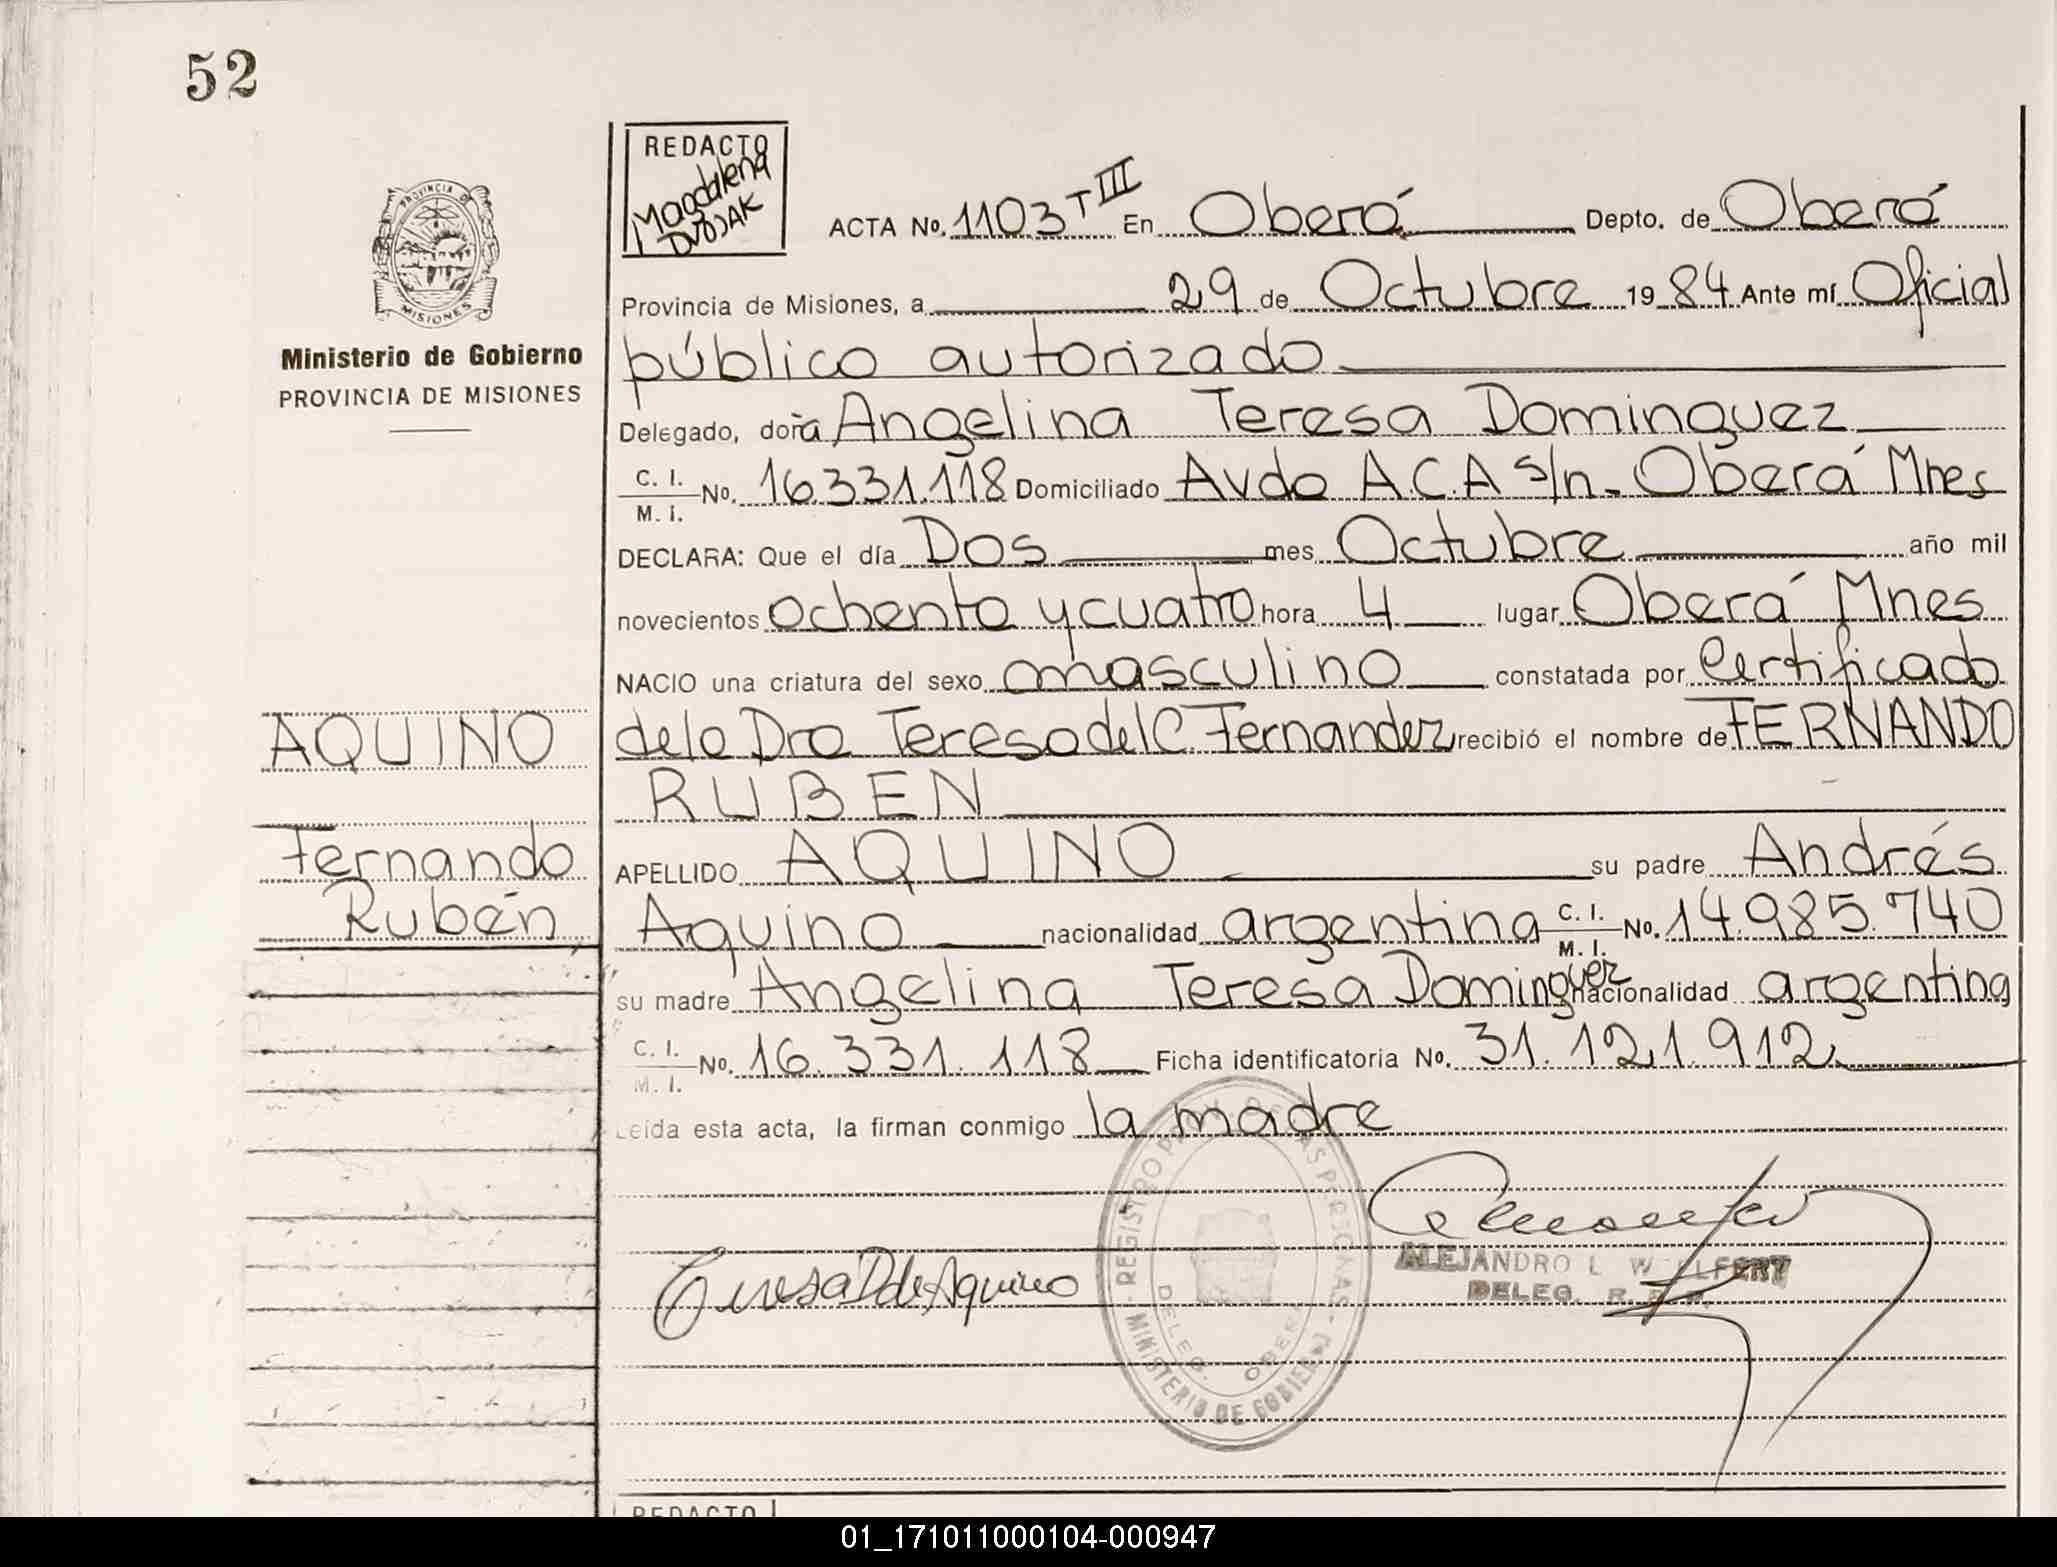 52
REDACTO
Magdalena
DVOJAK
ACTA No. 1103 T III En Oberá Depto. de Oberá
Provincia de Misiones, a 29 de Octubre 1984 Ante mí Oficial
público autorizado
Delegado, doña Angelina Teresa Dominguez
C. I. M. I. No. 16.331.118 Domiciliado Avda A.C.A s/n. Oberá Mnes
DECLARA: Que el día Dos mes Octubre año mil
novecientos ochenta y cuatro hora 4 lugar Oberá Mnes
NACIO una criatura del sexo masculino constatada por Certificado
de la Dra Teresa del C. Fernandez recibió el nombre de FERNANDO
RUBEN
APELLIDO AQUINO su padre Andrés
Aquino nacionalidad argentina C. I. M. I. No. 14.985.740
su madre Angelina Teresa Dominguez nacionalidad argentina
C. I. M. I. No. 16.331.118 Ficha identificatoria No. 31.121.912
Leída esta acta, la firman conmigo la madre
Teresa D de Aquino
ALEJANDRO L W LFERT
DELEG. R.
REGISTRO PROV. DE LAS PERSONAS
MINISTERIO DE GOBIERNO
DELEG. OBERA
PROVINCIA DE
MISIONES
Ministerio de Gobierno
PROVINCIA DE MISIONES
AQUINO
Fernando
Rubén
REDACTO
01_171011000104-000947